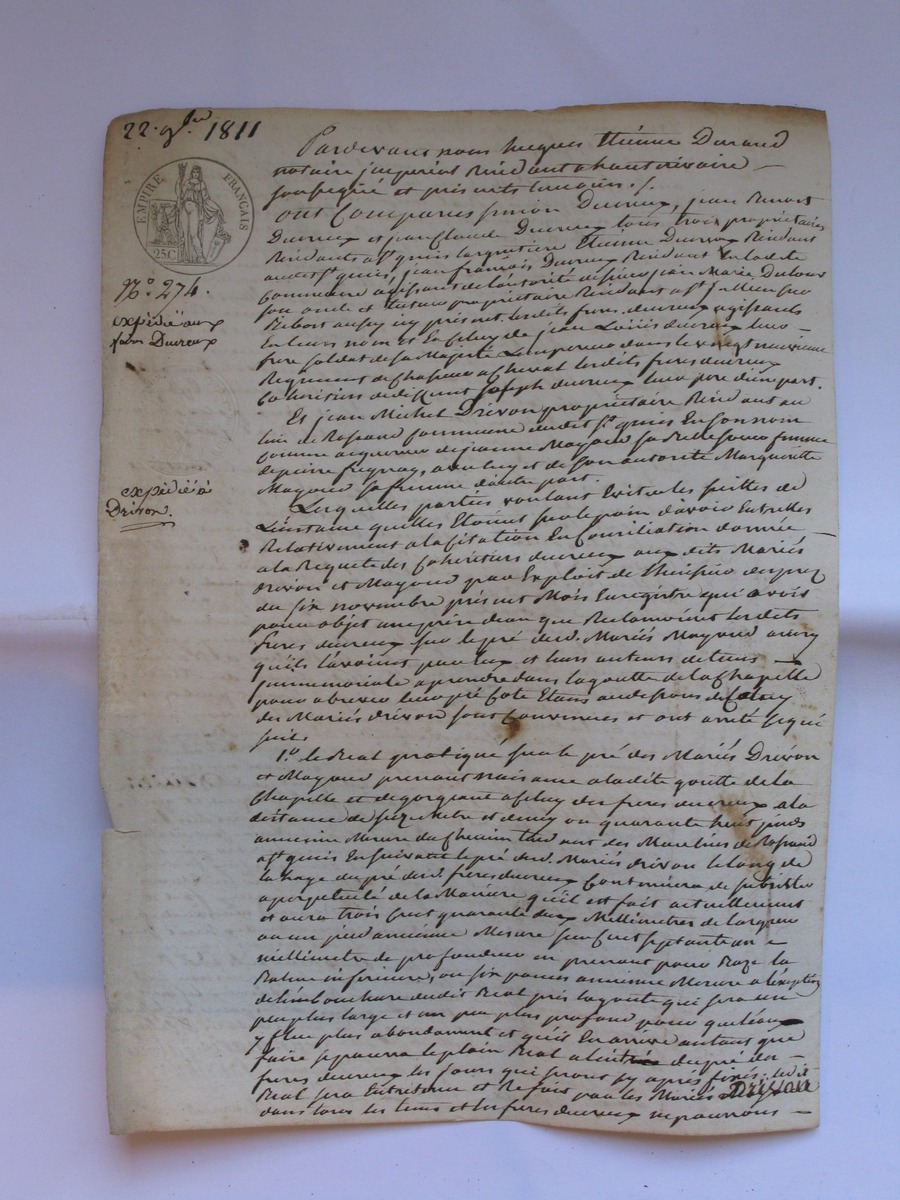 22 9bre 1811
EMPIRE FRANÇAIS
25C
N.° 274.
expédié aux
frères Ducreux
expédié à
Drivon.
Pardevant nous Jacques Etienne Durand
notaire imperial Résidant a hauterivoire
soussigné et présents temoins
ont Comparus simon Ducreux, jean Benoit
Ducreux et jean Claude Ducreux tous trois propriétaires
Résidants a st. genis largentiere Etienne Ducreux Résidant
audit st. genis, jean françois Ducreux Résidant en ladite
Commune agissant de lautorité de sieur jean Marie Dubour
son oncle et tuteur propriétaire Résidant a st.
Ribost aussy icy présent lesdits freres ducreux agissants
en leurs nom et en celuy de jean Louis ducreux leur
frere soldat de sa Majesté Lempereur dans le vingt neuvieme
Regiment de Chasseur a Cheval lesdits freres ducreux
Cohéritiers de deffunt joseph ducreux leur pere d'une part.
Et jean Michel Drivon propriétaire Résidant au
lieu de Rossand Commune dudit st. genis En son nom
comme acquereur de jeanne Mayoud sa Belle soeur femme
de pierre freynay, avec luy et de son autorité Marguerite
Mayoud sa femme d'autre part.
Lesquelles parties voulant Eviter les suittes de
L'instance quelles Etoient sur le point d'avoir Entrelles
Relativement a la Citation En Conciliation donnée
a la Requete des Cohéritiers ducreux aux dits Mariés
drivon et Mayoud par Exploit de l'huissier
du six novembre présent Mois Enregistré qui avoit
pour objet une prise d'eau que Reclamoient lesdits
freres ducreux sur le pré desd. Mariés Mayoud
qu'ils l'avoient par Eux et leurs auteurs de tems
immemoriale a prendre dans la goutte de la Chapelle
pour abreuver leur pré Cote Etans au dessous de Celuy
des Mariés drivon sont Convenues et ont arrêté ce qui
suit.
1.° le Béal pratiqué sur le pré des Mariés Drivon
et Mayoud prenant naissance a ladite goutte de la
Chapelle et degorgeant a Celuy des freres ducreux a la
distance de seize Metre et demy ou quarante huit pieds
ancienne Mesure du Chemin tendant des Moulins de Rossand
a st. genis En suivant le pré desd. Mariés drivon le long de
la haye du pré desd. freres ducreux Continuera de subsister
a perpétuité de la Maniere qu'il est fait actuellement
et aura trois Cent quarante deux Millimetres de largeur
ou un pied ancienne Mesure sur Cent septante un
millimetre de profondeur en prenant pour Baze la
Balme inférieure, ou six pouces ancienne Mesure a l'exception
de l'embouchure dudit Béal près la goutte qui sera un
peu plus large et un peu plus profond pour que l'eau
y flue plus abondament et qu'il En arrive autant que
faire se pourra le plain Béal a l'entrée du pré des
freres ducreux les jours qui seront cy après fixés; ledit
Béal sera Entretenu et Refait par les Mariés Drivon
dans tous les tems et les freres ducreux ne pourront